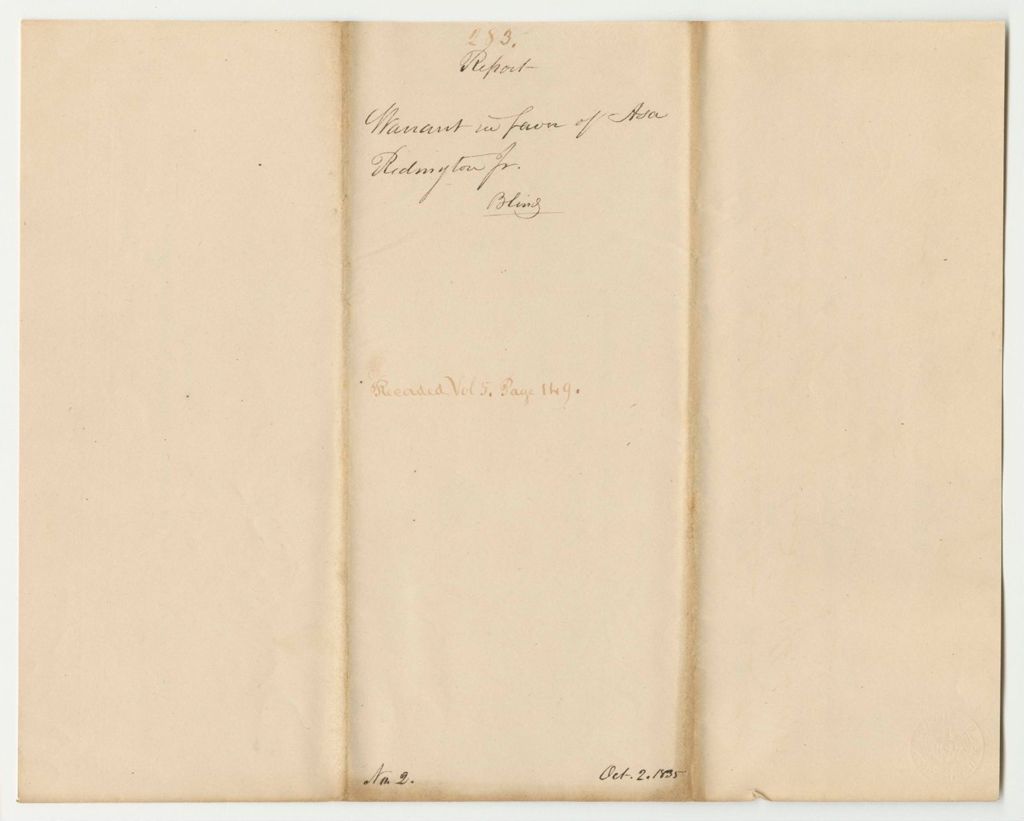 283.
Report
Warrant in favor of Asa
Redington Jr.
Blind
Recorded Vol 5. Page 149.
No. 2.
Oct. 2. 1835